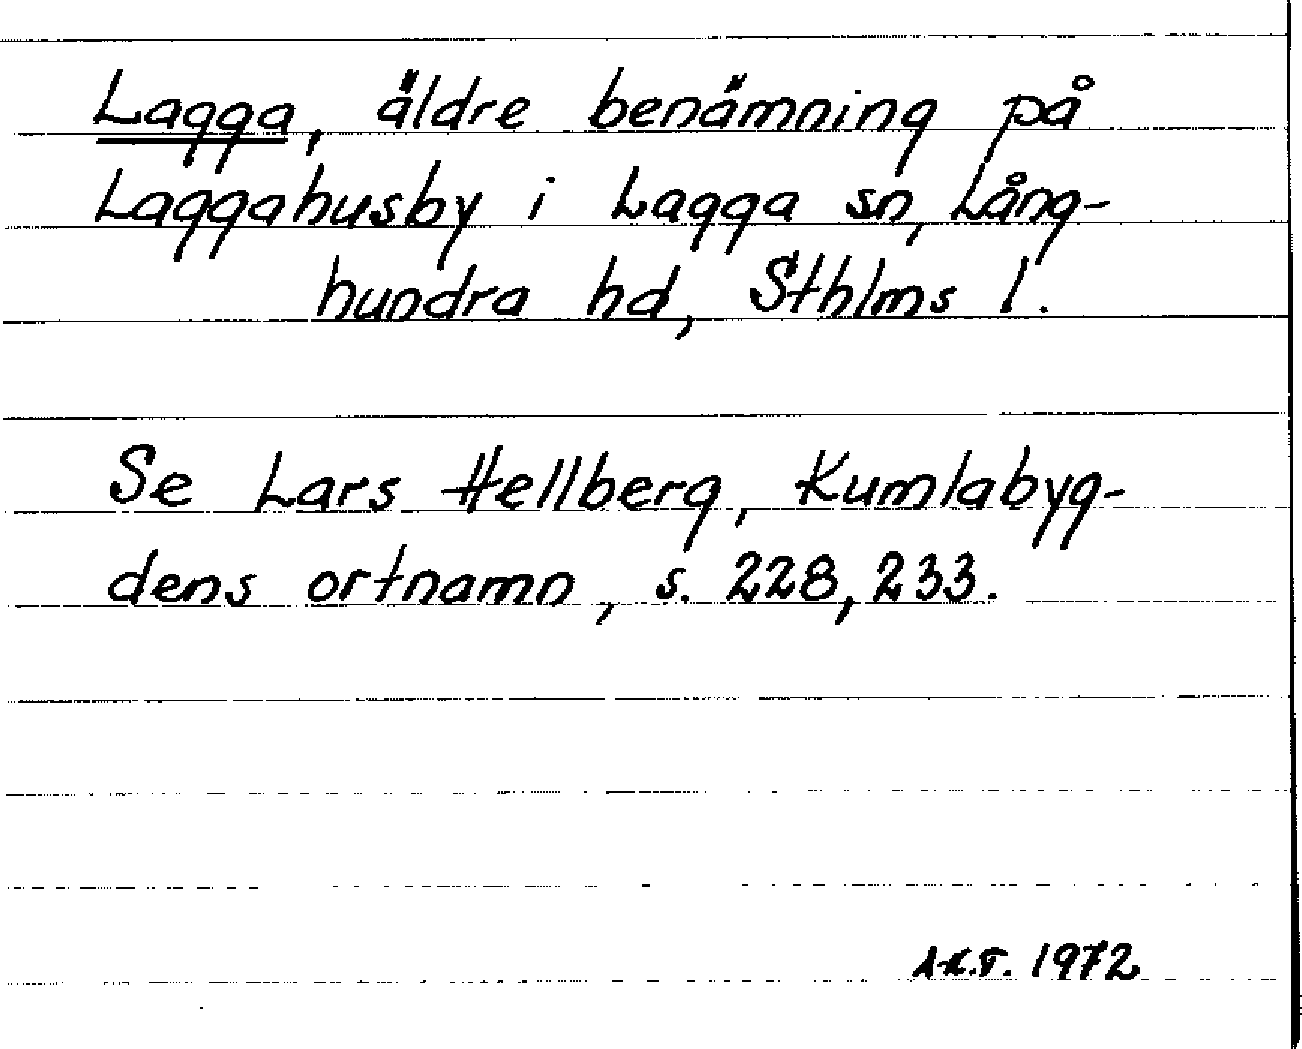 Lagga, äldre benämning på
Laggahusby i Lagga sn, Lång-
hundra hd, Sthlms l.
Se Lars Hellberg, Kumlabyg-
dens ortnamn, s. 228, 233.
1972